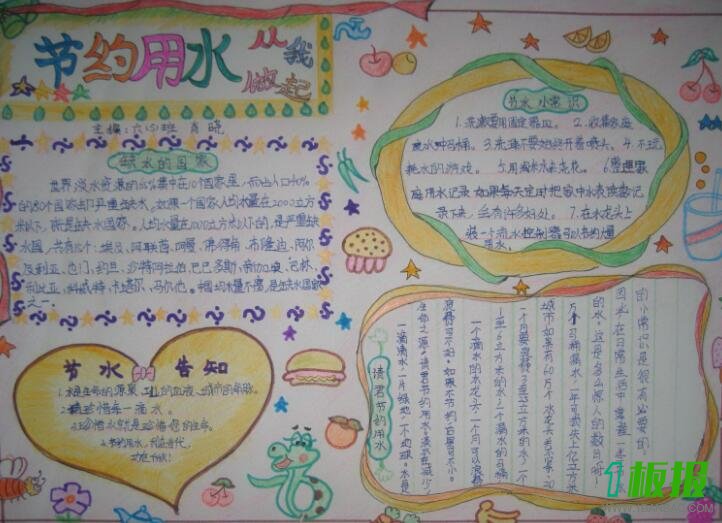 节约用水 从我做起
主编：六(3)班 肖晓
缺水的国家
世界淡水资源的65%集中在10个国家里，而占人口40%
的80个国家却严重缺水，如果一个国家人均水量在2000立方
米以下，就是缺水国家。人均水量在1000立方米以下的，是严重缺
水国，共有18个：埃及、阿联酋、阿曼、佛得角、布隆迪、阿尔
及利亚、也门、约旦、沙特阿拉伯、巴巴多斯、新加坡、巴林、
利比亚、科威特、卡塔尔、马尔他。中国均水量不虞，是缺水国家
之一。
节水小常识
1.洗漱要用固定器皿。 2.收集
水冲马桶。3.洗澡不要始终开着喷头。4.不玩
耗水的游戏。 5.用淘米水来浇花。 6.要把家
庭用水记录
录下来，会有许多好处。7.在水龙头上
装一个流水控制器可以节约大量
用水。
节水的告知
1.水是生命的源泉、工业的血液、城市的命脉。
2.请珍惜每一滴水。
3.珍惜水就是珍惜您的生命。
4.节约用水，利在当代，
功在千秋！
请君节约用水
的小常识是很有必要的
因此，在日常生活中，掌握一些节水
的水。这是多么惊人的数目呀！
5个马桶漏水，一年可损失上亿立方米
城市如果有60万个水龙头关不紧、20
个月要浪费3至25立方米的水，一个
1至6立方米的水；一个漏水的马桶
一个滴水的水龙头，一个月可以浪费
浪费可不好。如果不节约，后果可不小。
生命之源。请君节约用水。淡水在减少，
一滴清水，一片绿地，一个地球。水是
1板报